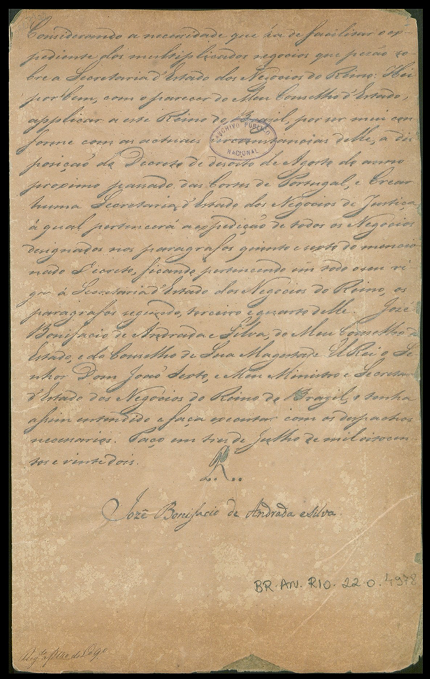 Considerando a necessidade que ha de facilitar o ex
pediente dos multiplicados negocios que pezão so
bre a Secretaria d'Estado dos Negocios do Reino: Hei
por bem, com o parecer do Meu Conselho d'Estado,
applicar a este Reino do Brazil, por ser mui con
forme com as actuaes circumstancias delle, a dis
posição do Decreto de desoito de Agosto do anno
proximo passado das Cortes de Portugal, e Crear
huma Secretaria d'Estado dos Negocios de Justiça
á qual pertencerá a expedição de todos os Negocios
designados nos paragrafos quinto e sexto do mencio
nado Decreto, ficando pertencendo em todo o seu vi
gor á Secretaria d'Estado dos Negocios do Reino, os
paragrafos segundo, terceiro e quarto delle. Jozé
Bonifacio de Andrada e Silva, do Meu Conselho de
Estado, e do Conselho de Sua Magestade El Rei o Se
nhor Dom João Sexto, e Meu Ministro e Secretario
d'Estado dos Negocios do Reino do Brazil, o tenha
assim entendido e faça executar com os despachos
necessarios. Paço em tres de Julho de mil oitocen
tos e vinte dois.
Jozé Bonifacio de Andrada e Silva
BR.AN.RIO.22.0.4978
ARCHIVO PUBLICO
NACIONAL